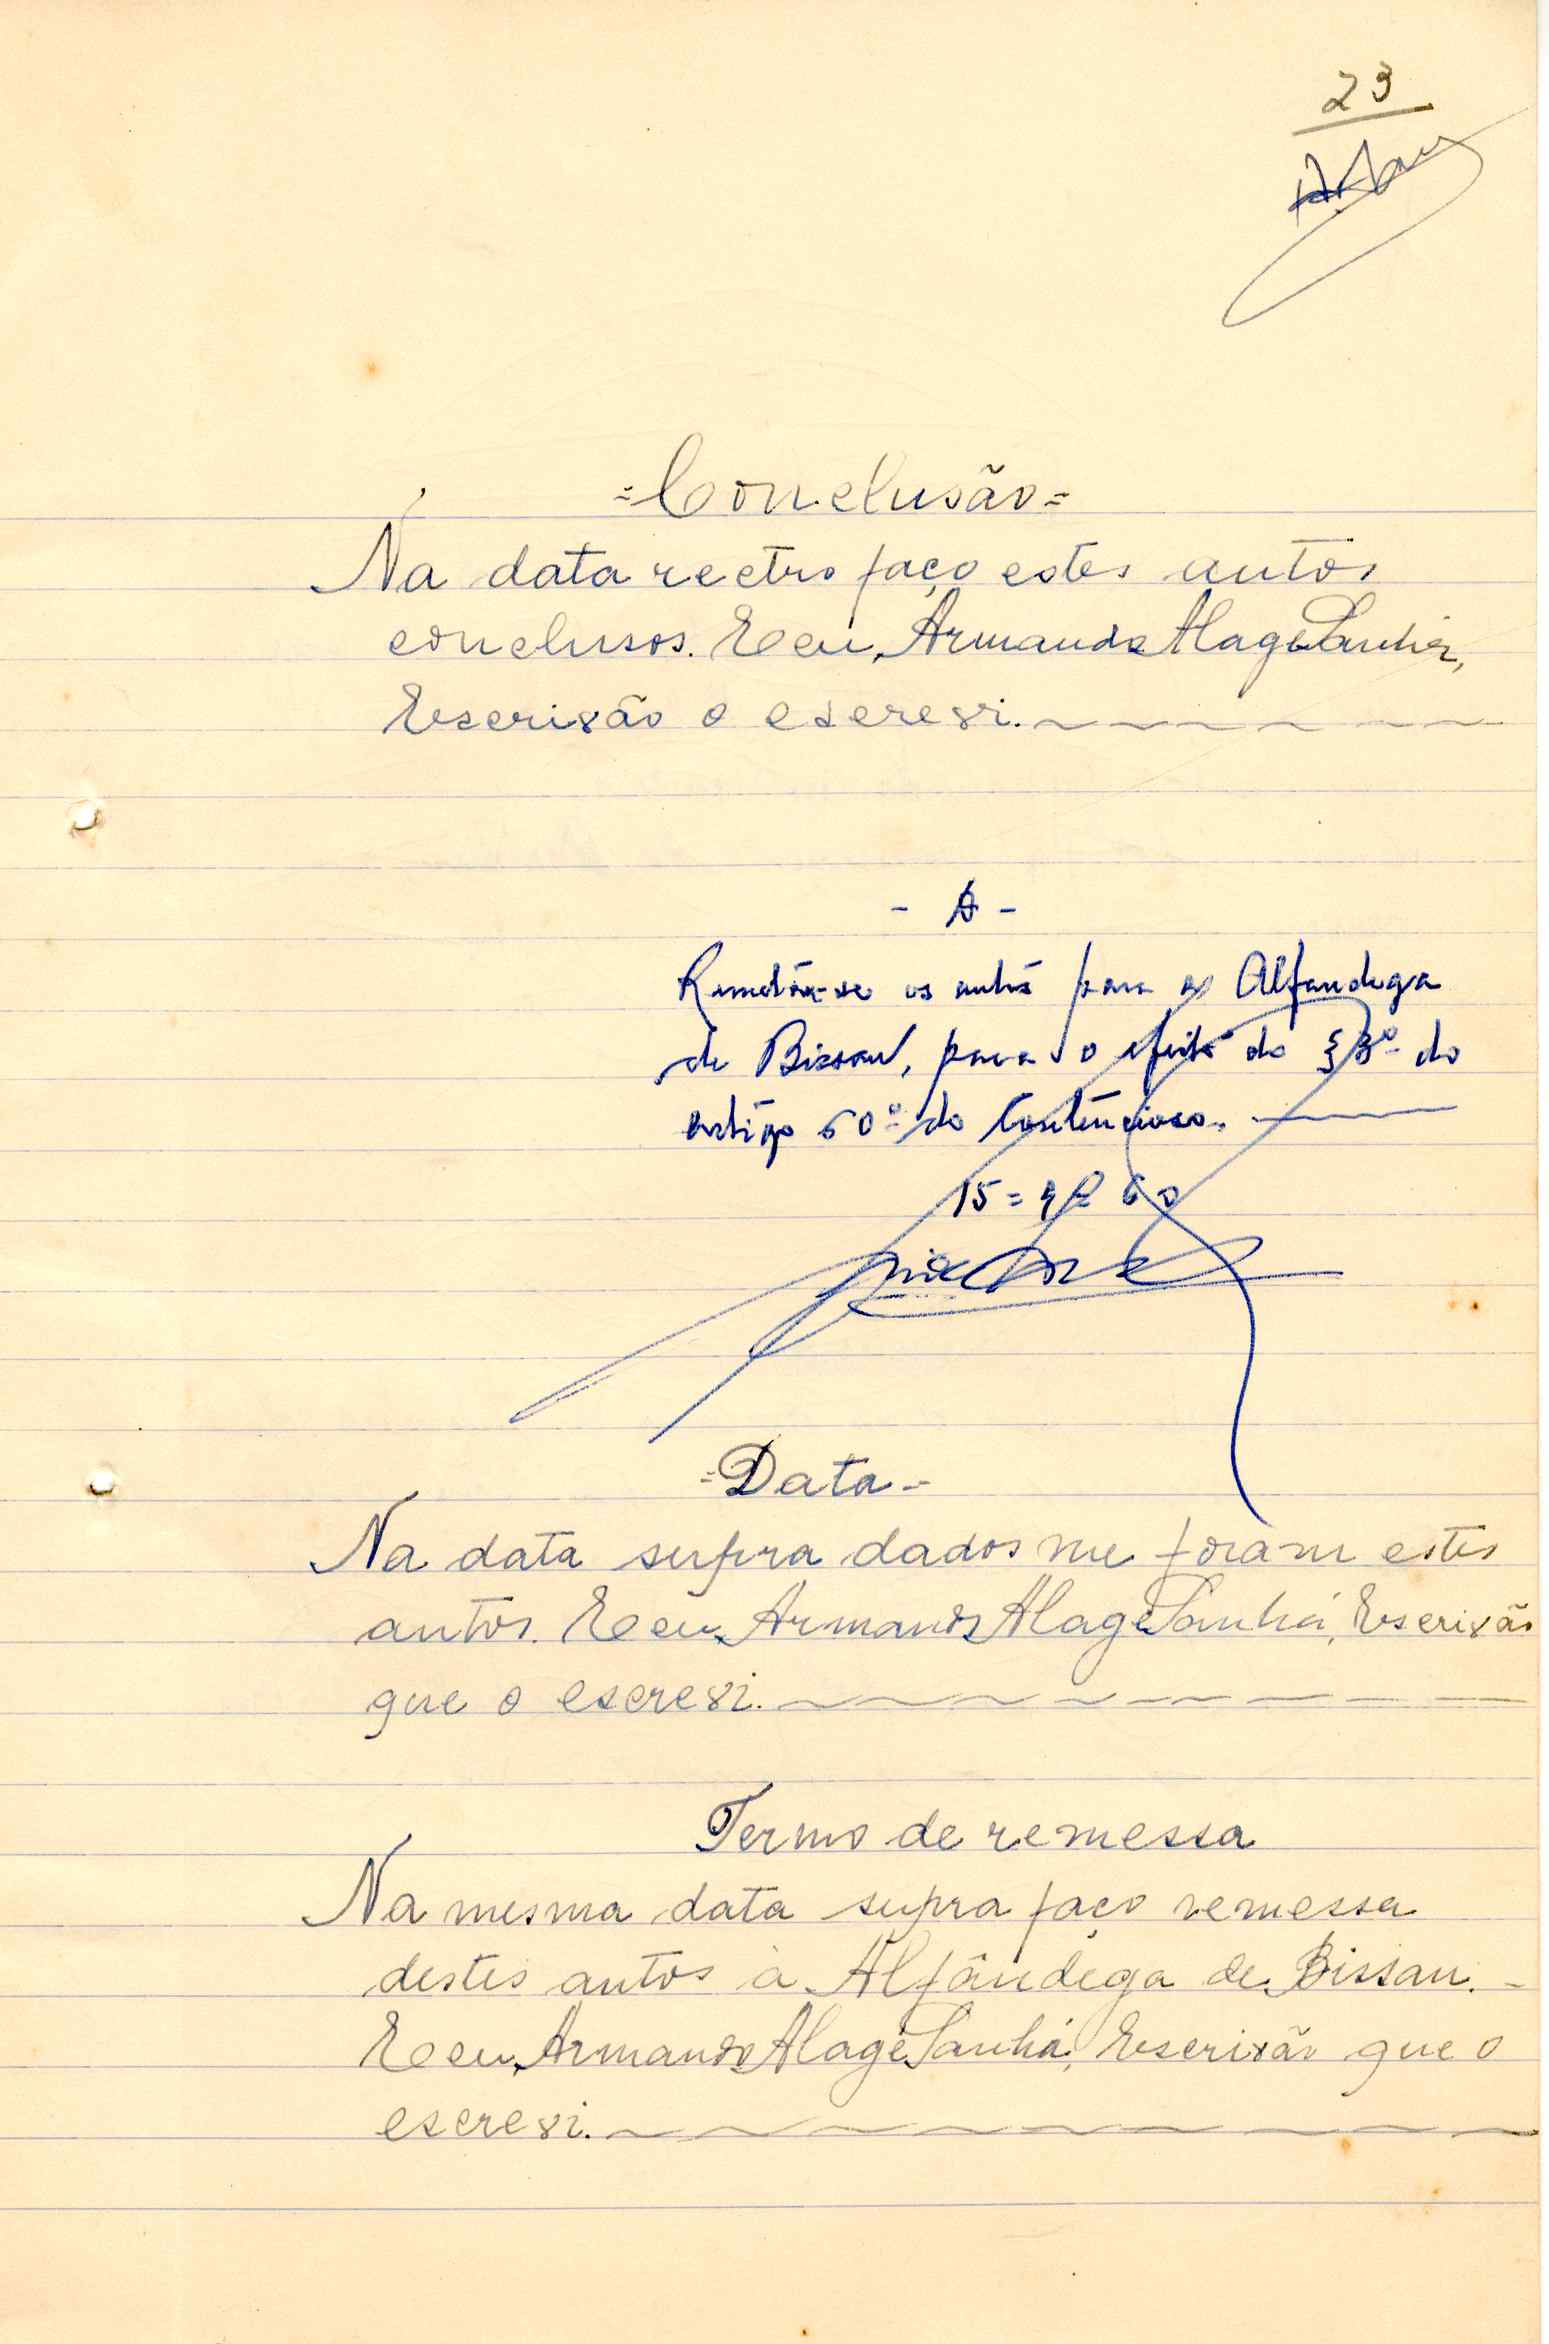 23
=Conclusão=
Na data rectro faço estes autos
conclusos. E eu, Armando Alage Sanhá,
Escrivão o escrevi.
- A -
Remetam-se os autos para a Alfandega
de Bissau, para o efeito do § 3º do
artigo 60º do Contencioso.
15 = 60
=Data=
Na data supra dados me foram estes
autos. E eu, Armando Alage Sanhá, Escrivão
que o escrevi.
Termo de remessa
Na mesma data supra faço remessa
destes autos à Alfândega de Bissau. -
E eu, Armando Alage Sanhá, Escrivão que o
escrevi.